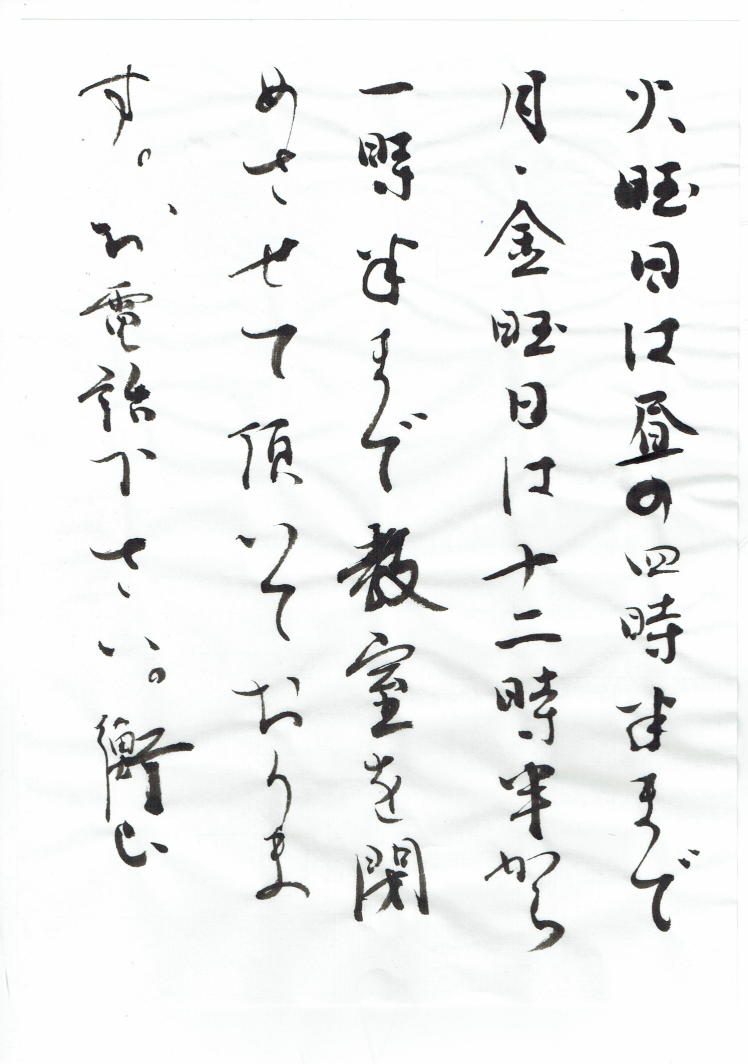 火曜日は昼の四時半まで
月、金曜日は十二時半から
一時半まで教室を閉
めさせて頂いておりま
す。お電話下さい。衡山